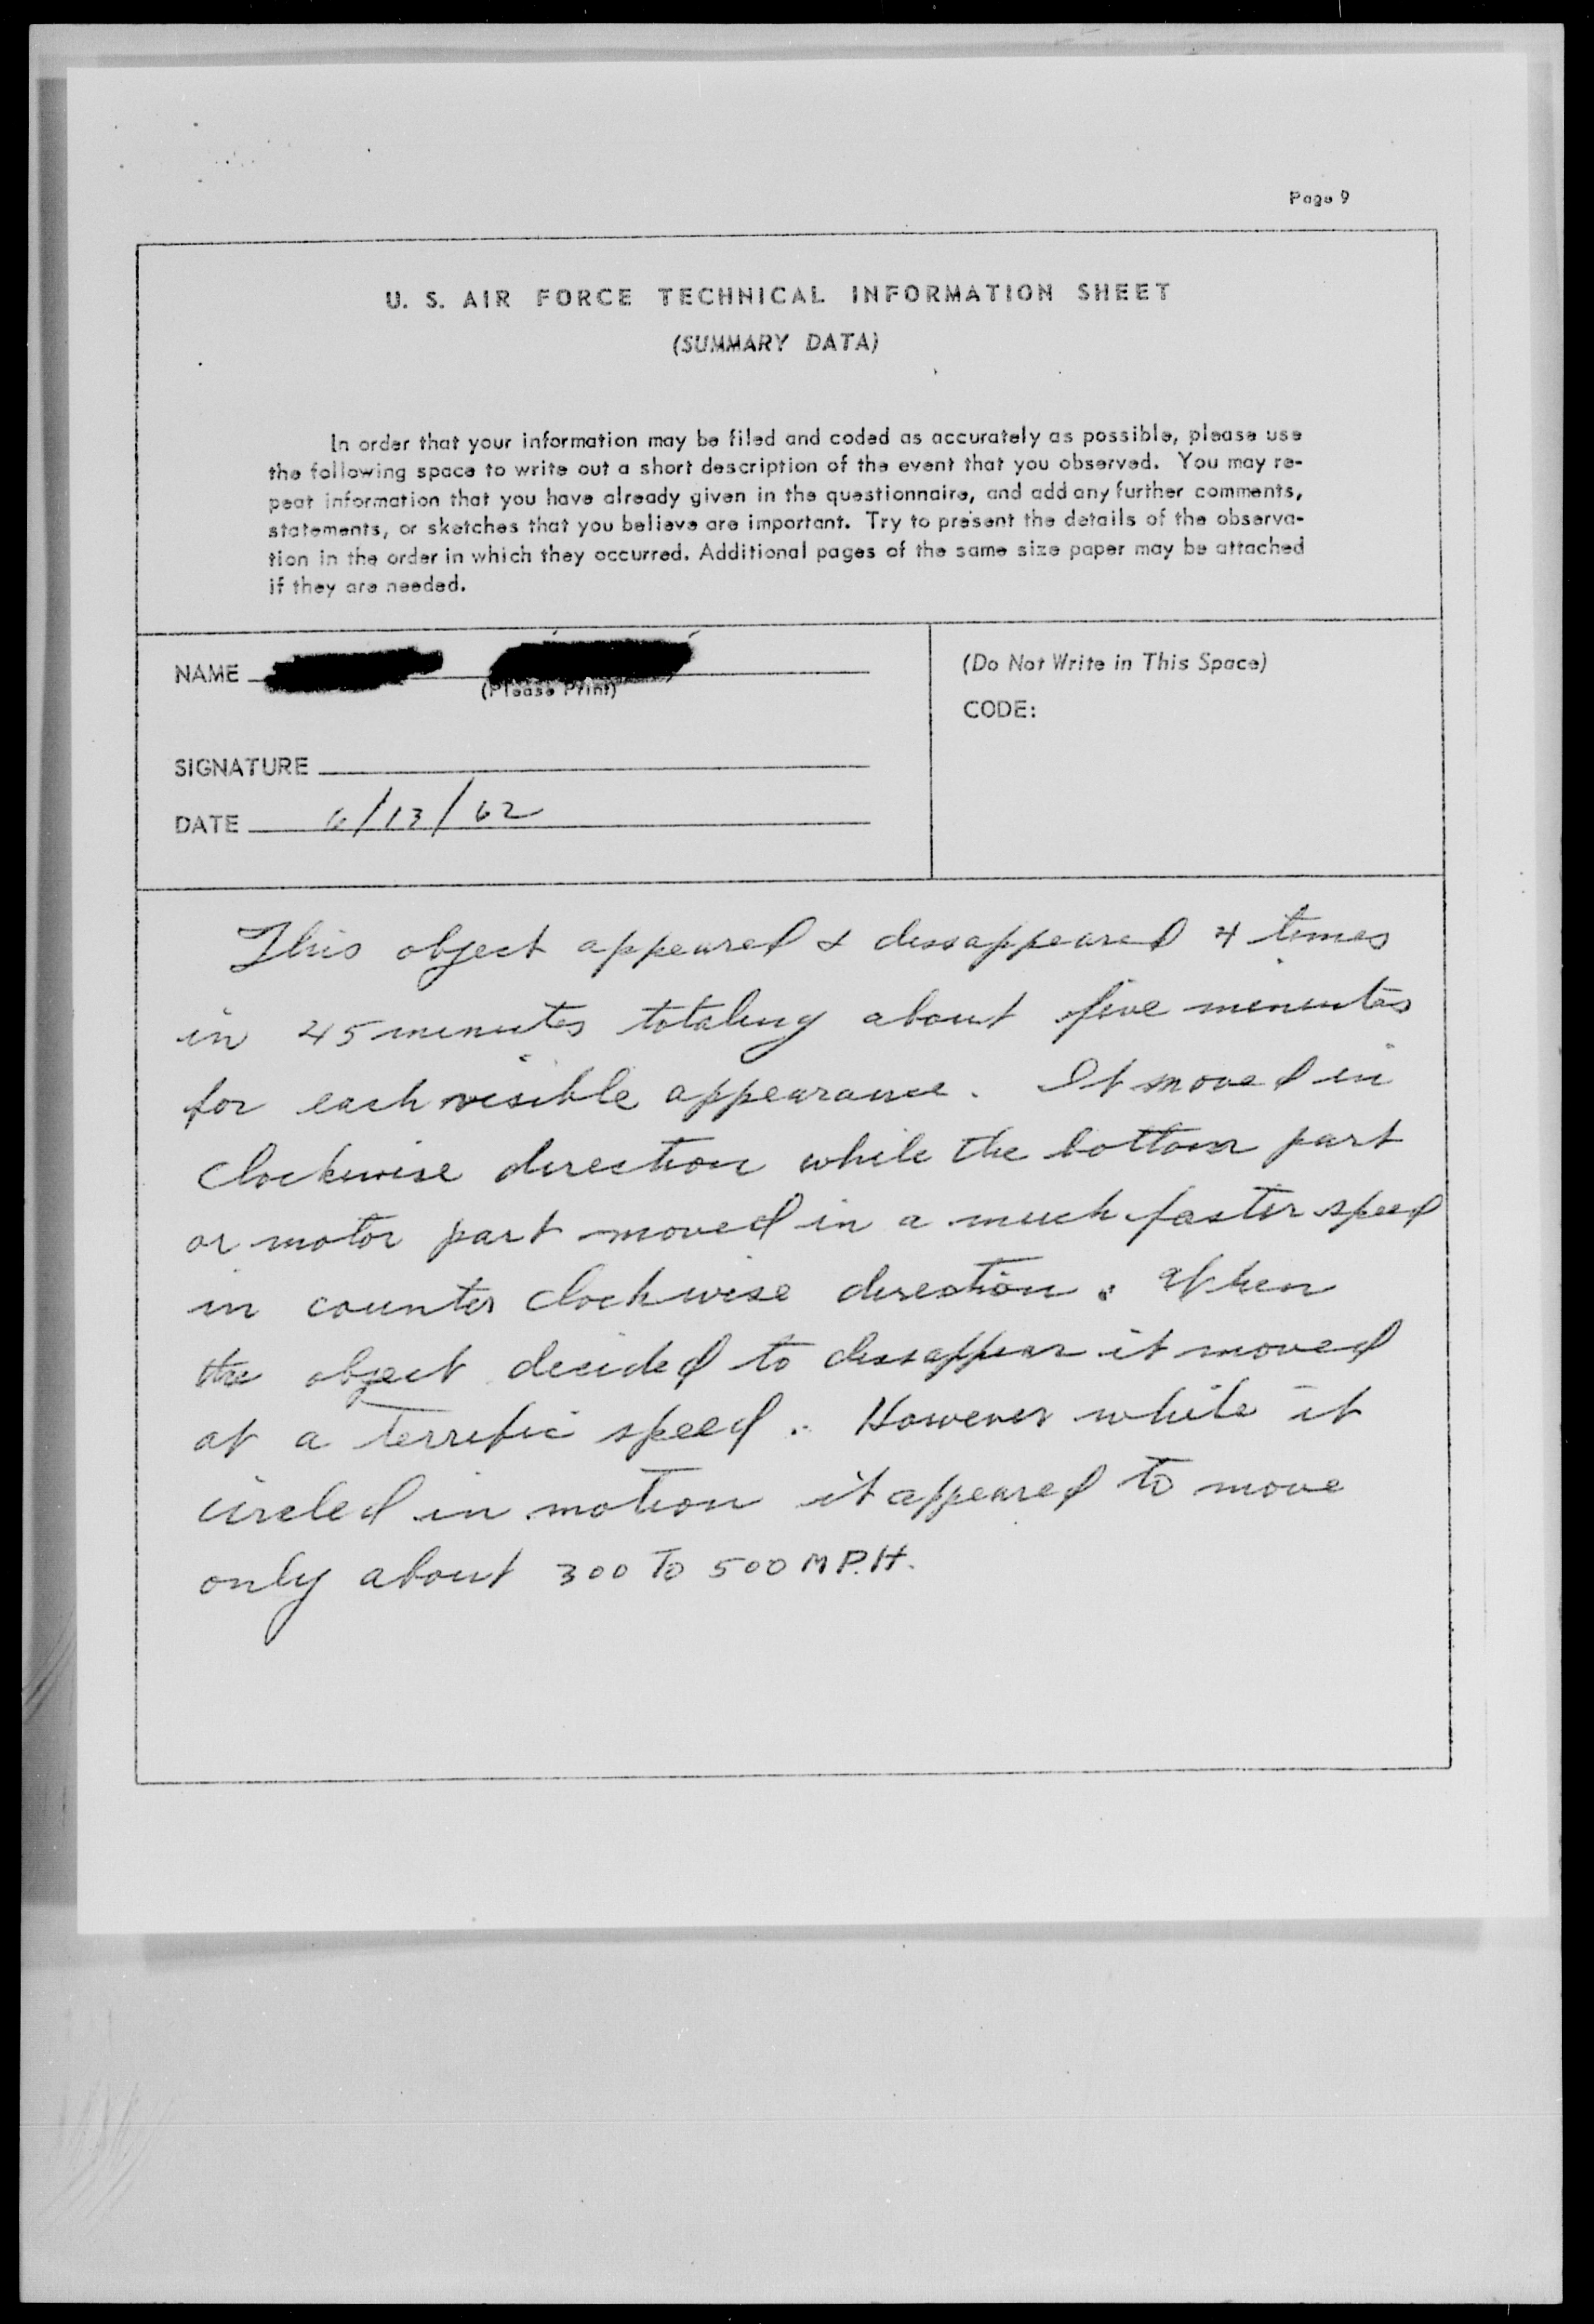 Page 9
U. S. AIR FORCE TECHNICAL INFORMATION SHEET
(SUMMARY DATA)
In order that your information may be filed and coded as accurately as possible, please use
the following space to write out a short description of the event that you observed. You may re-
peat information that you have already given in the questionnaire, and add any further comments,
statements, or sketches that you believe are important. Try to present the details of the observa-
tion in the order in which they occurred. Additional pages of the same size paper may be attached
if they are needed.
NAME
(Please Print)
SIGNATURE
DATE 6/13/62
(Do Not Write in This Space)
CODE:
This object appeared & dissappeared 4 times
in 45 minutes totaling about five minutes
for each visible appearance. It moved in
clockwise direction while the bottom part
or motor part moved in a much faster speed
in counter clockwise direction. When
the object decided to dissappear it moved
at a terrific speed. However while it
circled in motion it appeared to move
only about 300 To 500 M P.H.